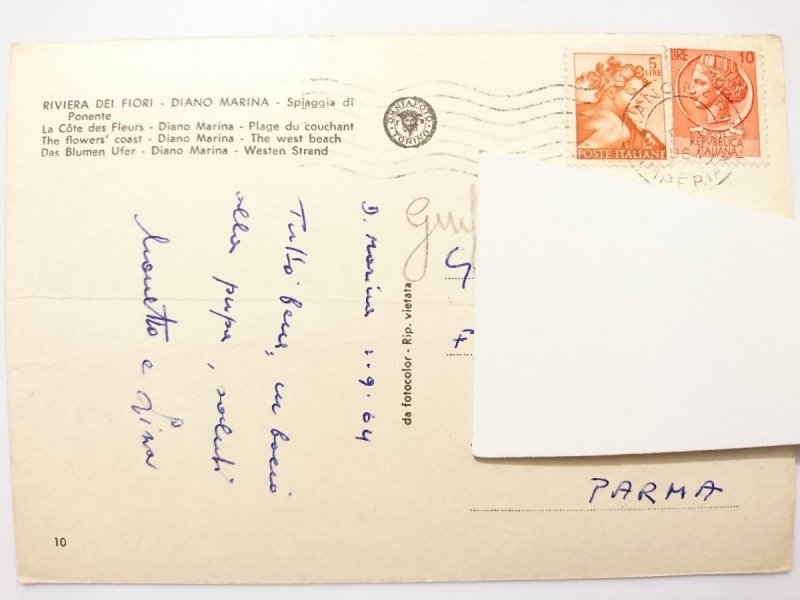 RIVIERA DEI FIORI - DIANO MARINA - Spiaggia di
Ponente
La Côte des Fleurs - Diano Marina - Plage du couchant
The flowers' coast - Diano Marina - The west beach
Das Blumen Ufer - Diano Marina - Westen Strand
5
LIRE
POSTE ITALIANE
LIRE 10
POSTE
REPVBBLICA
ITALIANA
IMPERIA
TORINO
D. Marina 1.9.64
Tutto bene, un bacio
alla pupa, saluti
e Lina
da fotocolor - Rip. vietata
PARMA
10